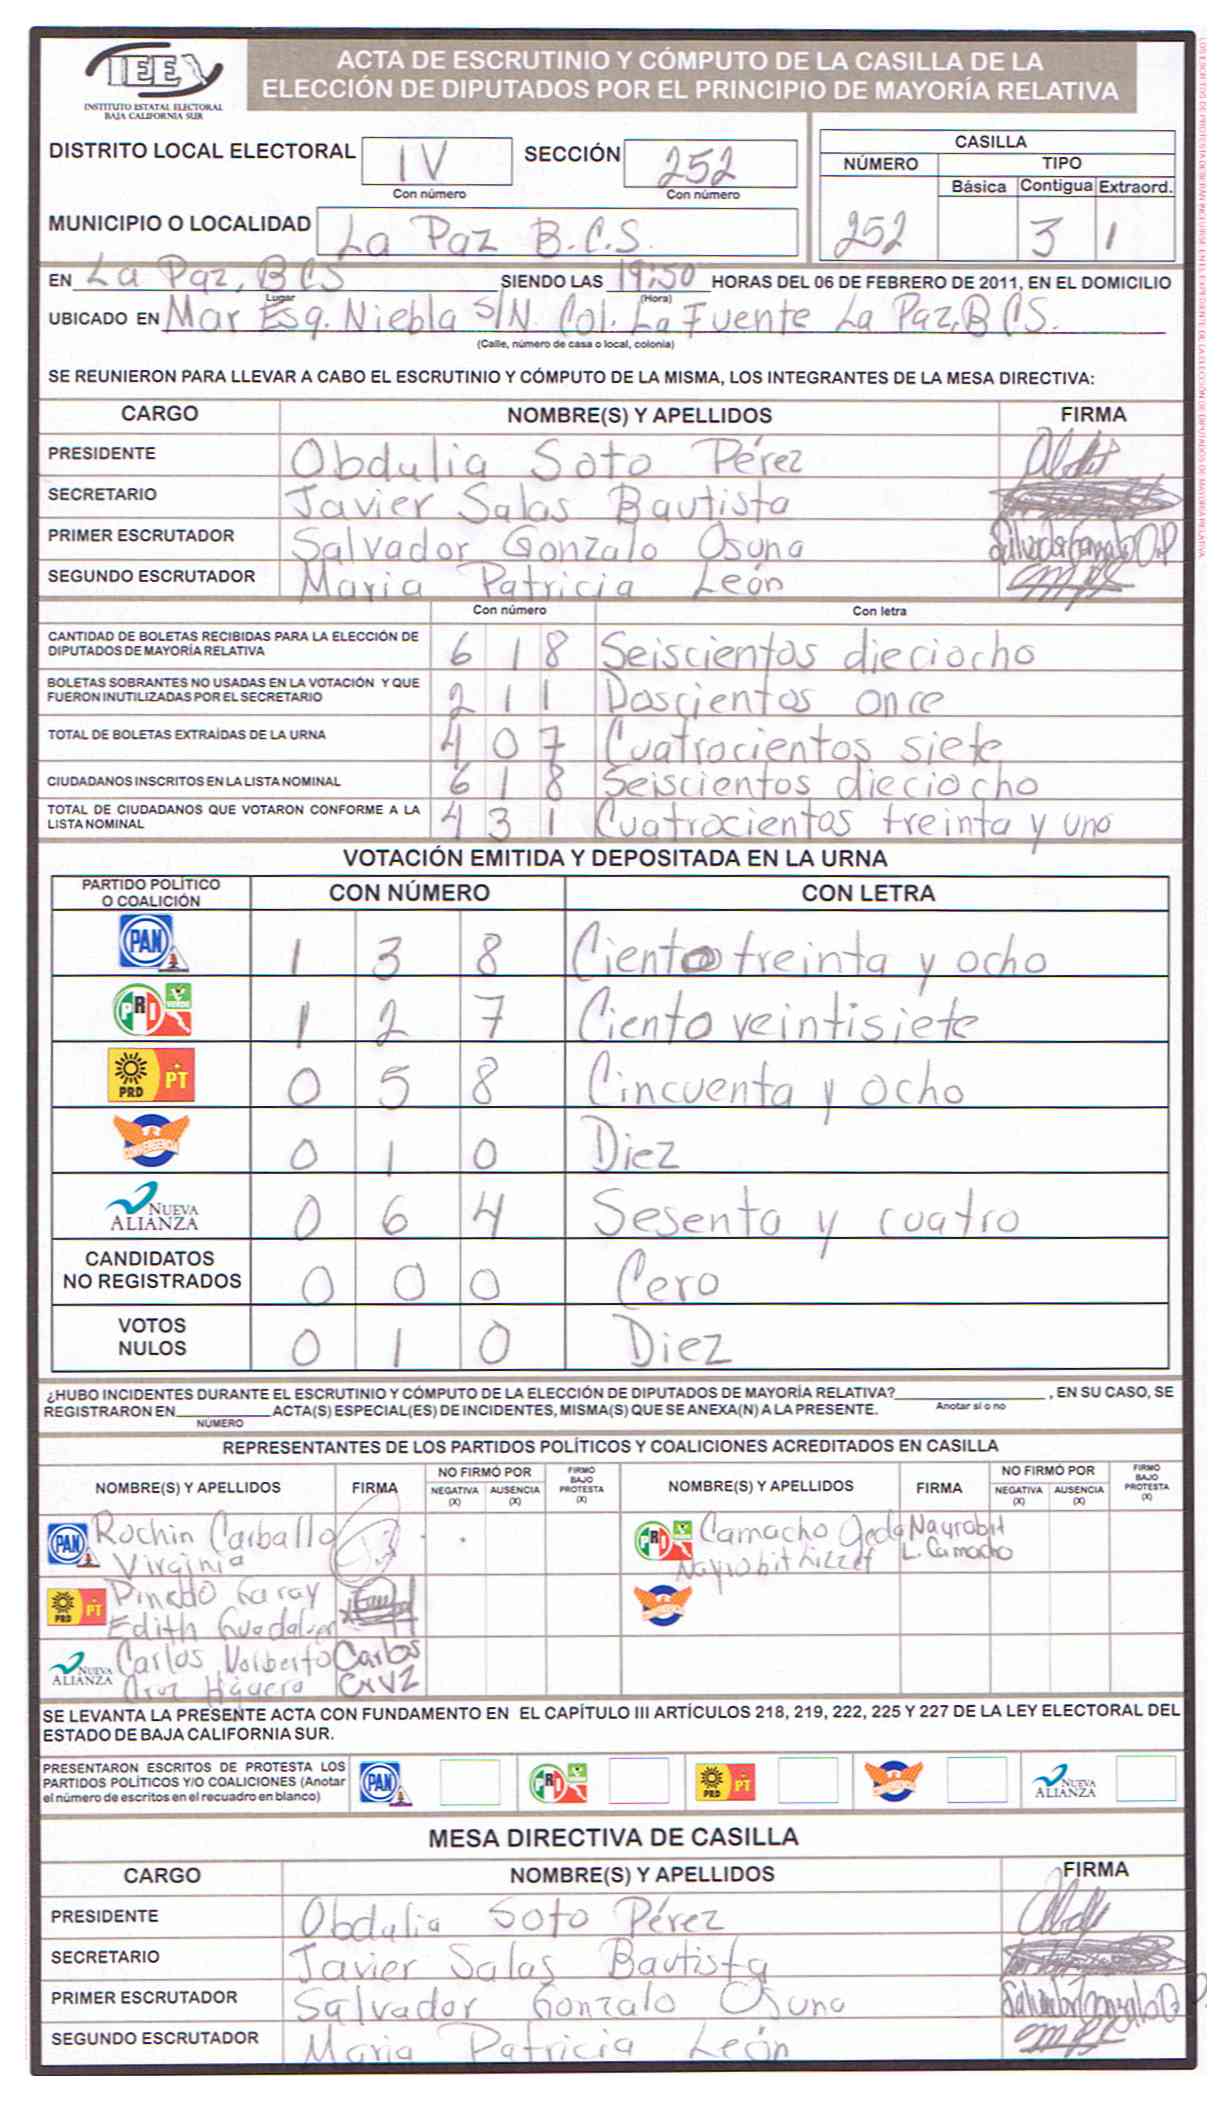 IEE
INSTITUTO ESTATAL ELECTORAL
BAJA CALIFORNIA SUR
ACTA DE ESCRUTINIO Y CÓMPUTO DE LA CASILLA DE LA
ELECCIÓN DE DIPUTADOS POR EL PRINCIPIO DE MAYORÍA RELATIVA
DISTRITO LOCAL ELECTORAL IV SECCIÓN 252
Con número Con número
MUNICIPIO O LOCALIDAD La Paz B.C.S.
CASILLA
NÚMERO TIPO
Básica Contigua Extraord.
252 3 1
EN La Paz, BCS SIENDO LAS 19:50 HORAS DEL 06 DE FEBRERO DE 2011, EN EL DOMICILIO
Lugar (Hora)
UBICADO EN Mar Esq. Niebla S/N. Col. La Fuente La Paz, BCS.
(Calle, número de casa o local, colonia)
SE REUNIERON PARA LLEVAR A CABO EL ESCRUTINIO Y CÓMPUTO DE LA MISMA, LOS INTEGRANTES DE LA MESA DIRECTIVA:
CARGO NOMBRE(S) Y APELLIDOS FIRMA
PRESIDENTE Obdulia Soto Pérez
SECRETARIO Javier Salas Bautista
PRIMER ESCRUTADOR Salvador Gonzalo Osuna
SEGUNDO ESCRUTADOR Maria Patricia León
Con número Con letra
CANTIDAD DE BOLETAS RECIBIDAS PARA LA ELECCIÓN DE
DIPUTADOS DE MAYORÍA RELATIVA 6 1 8 Seiscientos dieciocho
BOLETAS SOBRANTES NO USADAS EN LA VOTACIÓN Y QUE
FUERON INUTILIZADAS POR EL SECRETARIO 2 1 1 Doscientos once
TOTAL DE BOLETAS EXTRAÍDAS DE LA URNA 4 0 7 Cuatrocientos siete
CIUDADANOS INSCRITOS EN LA LISTA NOMINAL 6 1 8 Seiscientos dieciocho
TOTAL DE CIUDADANOS QUE VOTARON CONFORME A LA
LISTA NOMINAL 4 3 1 Cuatrocientos treinta y uno
VOTACIÓN EMITIDA Y DEPOSITADA EN LA URNA
PARTIDO POLÍTICO
O COALICIÓN CON NÚMERO CON LETRA
PAN 1 3 8 Ciento treinta y ocho
PRI VERDE 1 2 7 Ciento veintisiete
PRD PT 0 5 8 Cincuenta y ocho
CONVERGENCIA 0 1 0 Diez
NUEVA ALIANZA 0 6 4 Sesenta y cuatro
CANDIDATOS
NO REGISTRADOS 0 0 0 Cero
VOTOS
NULOS 0 1 0 Diez
¿HUBO INCIDENTES DURANTE EL ESCRUTINIO Y CÓMPUTO DE LA ELECCIÓN DE DIPUTADOS DE MAYORÍA RELATIVA? , EN SU CASO, SE
Anotar sí o no
REGISTRARON EN ACTA(S) ESPECIAL(ES) DE INCIDENTES, MISMA(S) QUE SE ANEXA(N) A LA PRESENTE.
NÚMERO
REPRESENTANTES DE LOS PARTIDOS POLÍTICOS Y COALICIONES ACREDITADOS EN CASILLA
NOMBRE(S) Y APELLIDOS FIRMA NO FIRMÓ POR NEGATIVA (X) AUSENCIA (X) FIRMÓ BAJO PROTESTA (X) NOMBRE(S) Y APELLIDOS FIRMA NO FIRMÓ POR NEGATIVA (X) AUSENCIA (X) FIRMÓ BAJO PROTESTA (X)
PAN Rochin Carballo
Virginia
PRI Camacho Nayrobit
L. Camacho
PRD PT Pinedo Garay
Edith
NUEVA ALIANZA Carlos Norberto Carlos
Cruz Higuera Cruz
SE LEVANTA LA PRESENTE ACTA CON FUNDAMENTO EN EL CAPÍTULO III ARTÍCULOS 218, 219, 222, 225 Y 227 DE LA LEY ELECTORAL DEL
ESTADO DE BAJA CALIFORNIA SUR.
PRESENTARON ESCRITOS DE PROTESTA LOS
PARTIDOS POLÍTICOS Y/O COALICIONES (Anotar
el número de escritos en el recuadro en blanco)
PAN PRI PRD PT NUEVA ALIANZA
MESA DIRECTIVA DE CASILLA
CARGO NOMBRE(S) Y APELLIDOS FIRMA
PRESIDENTE Obdulia Soto Pérez
SECRETARIO Javier Salas Bautista
PRIMER ESCRUTADOR Salvador Gonzalo Osuna
SEGUNDO ESCRUTADOR Maria Patricia León